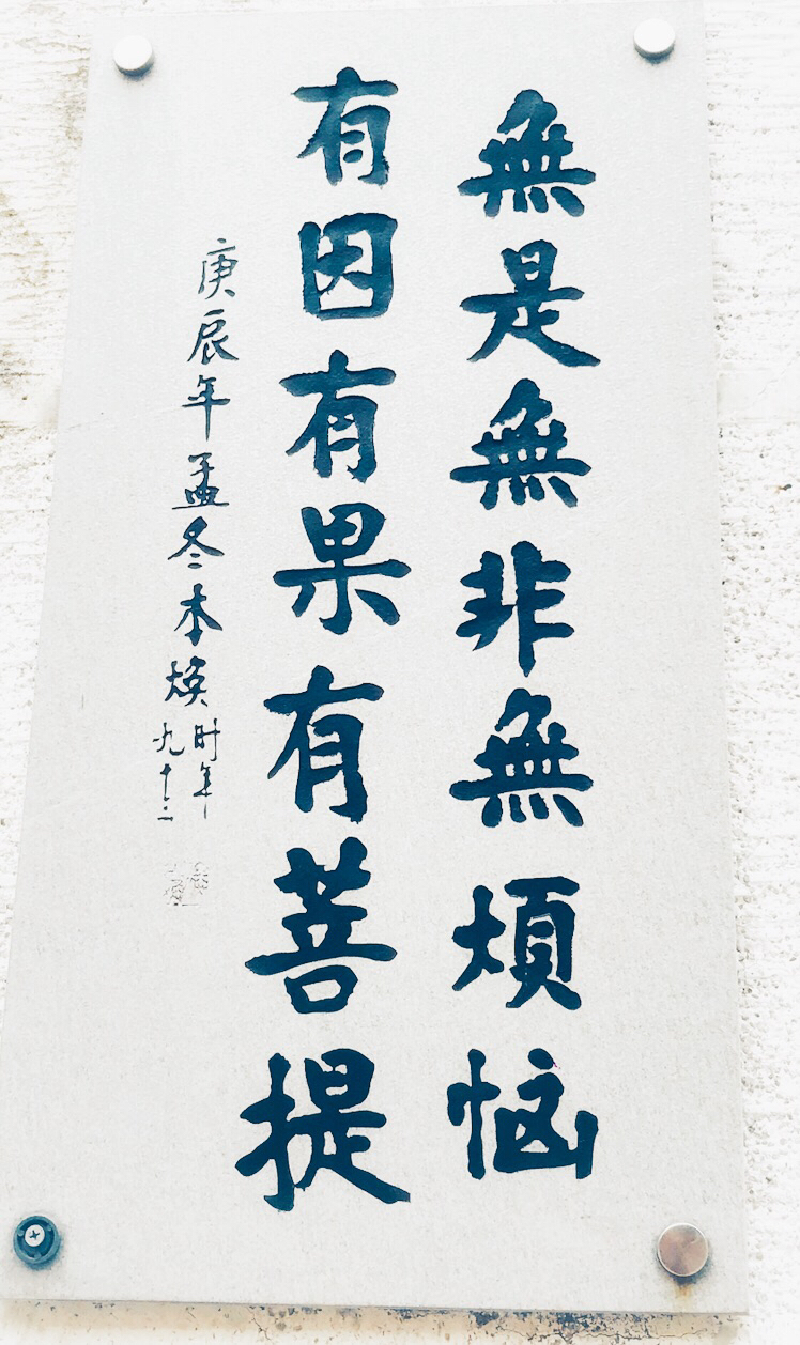 無是無非無煩恼
有因有果有菩提
庚辰年孟冬本焕时年九十二